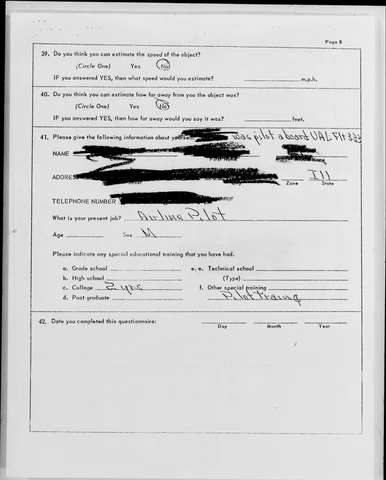 Page 8
39. Do you think you can estimate the speed of the object?
(Circle One) Yes No
IF you answered YES, then what speed would you estimate? m.p.h.
40. Do you think you can estimate how far away from you the object was?
(Circle One) Yes No
IF you answered YES, then how far away would you say it was? feet.
41. Please give the following information about was pilot aboard UAL Flt 333
NAME
ADDRESS Ill
Zone State
TELEPHONE NUMBER
What is your present job? Airline Pilot
Age Sex M
Please indicate any special educational training that you have had.
a. Grade school e. Technical school
b. High school (Type)
c. College 2 yrs f. Other special training
d. Post graduate Pilot Training
42. Date you completed this questionnaire:
Day Month Year